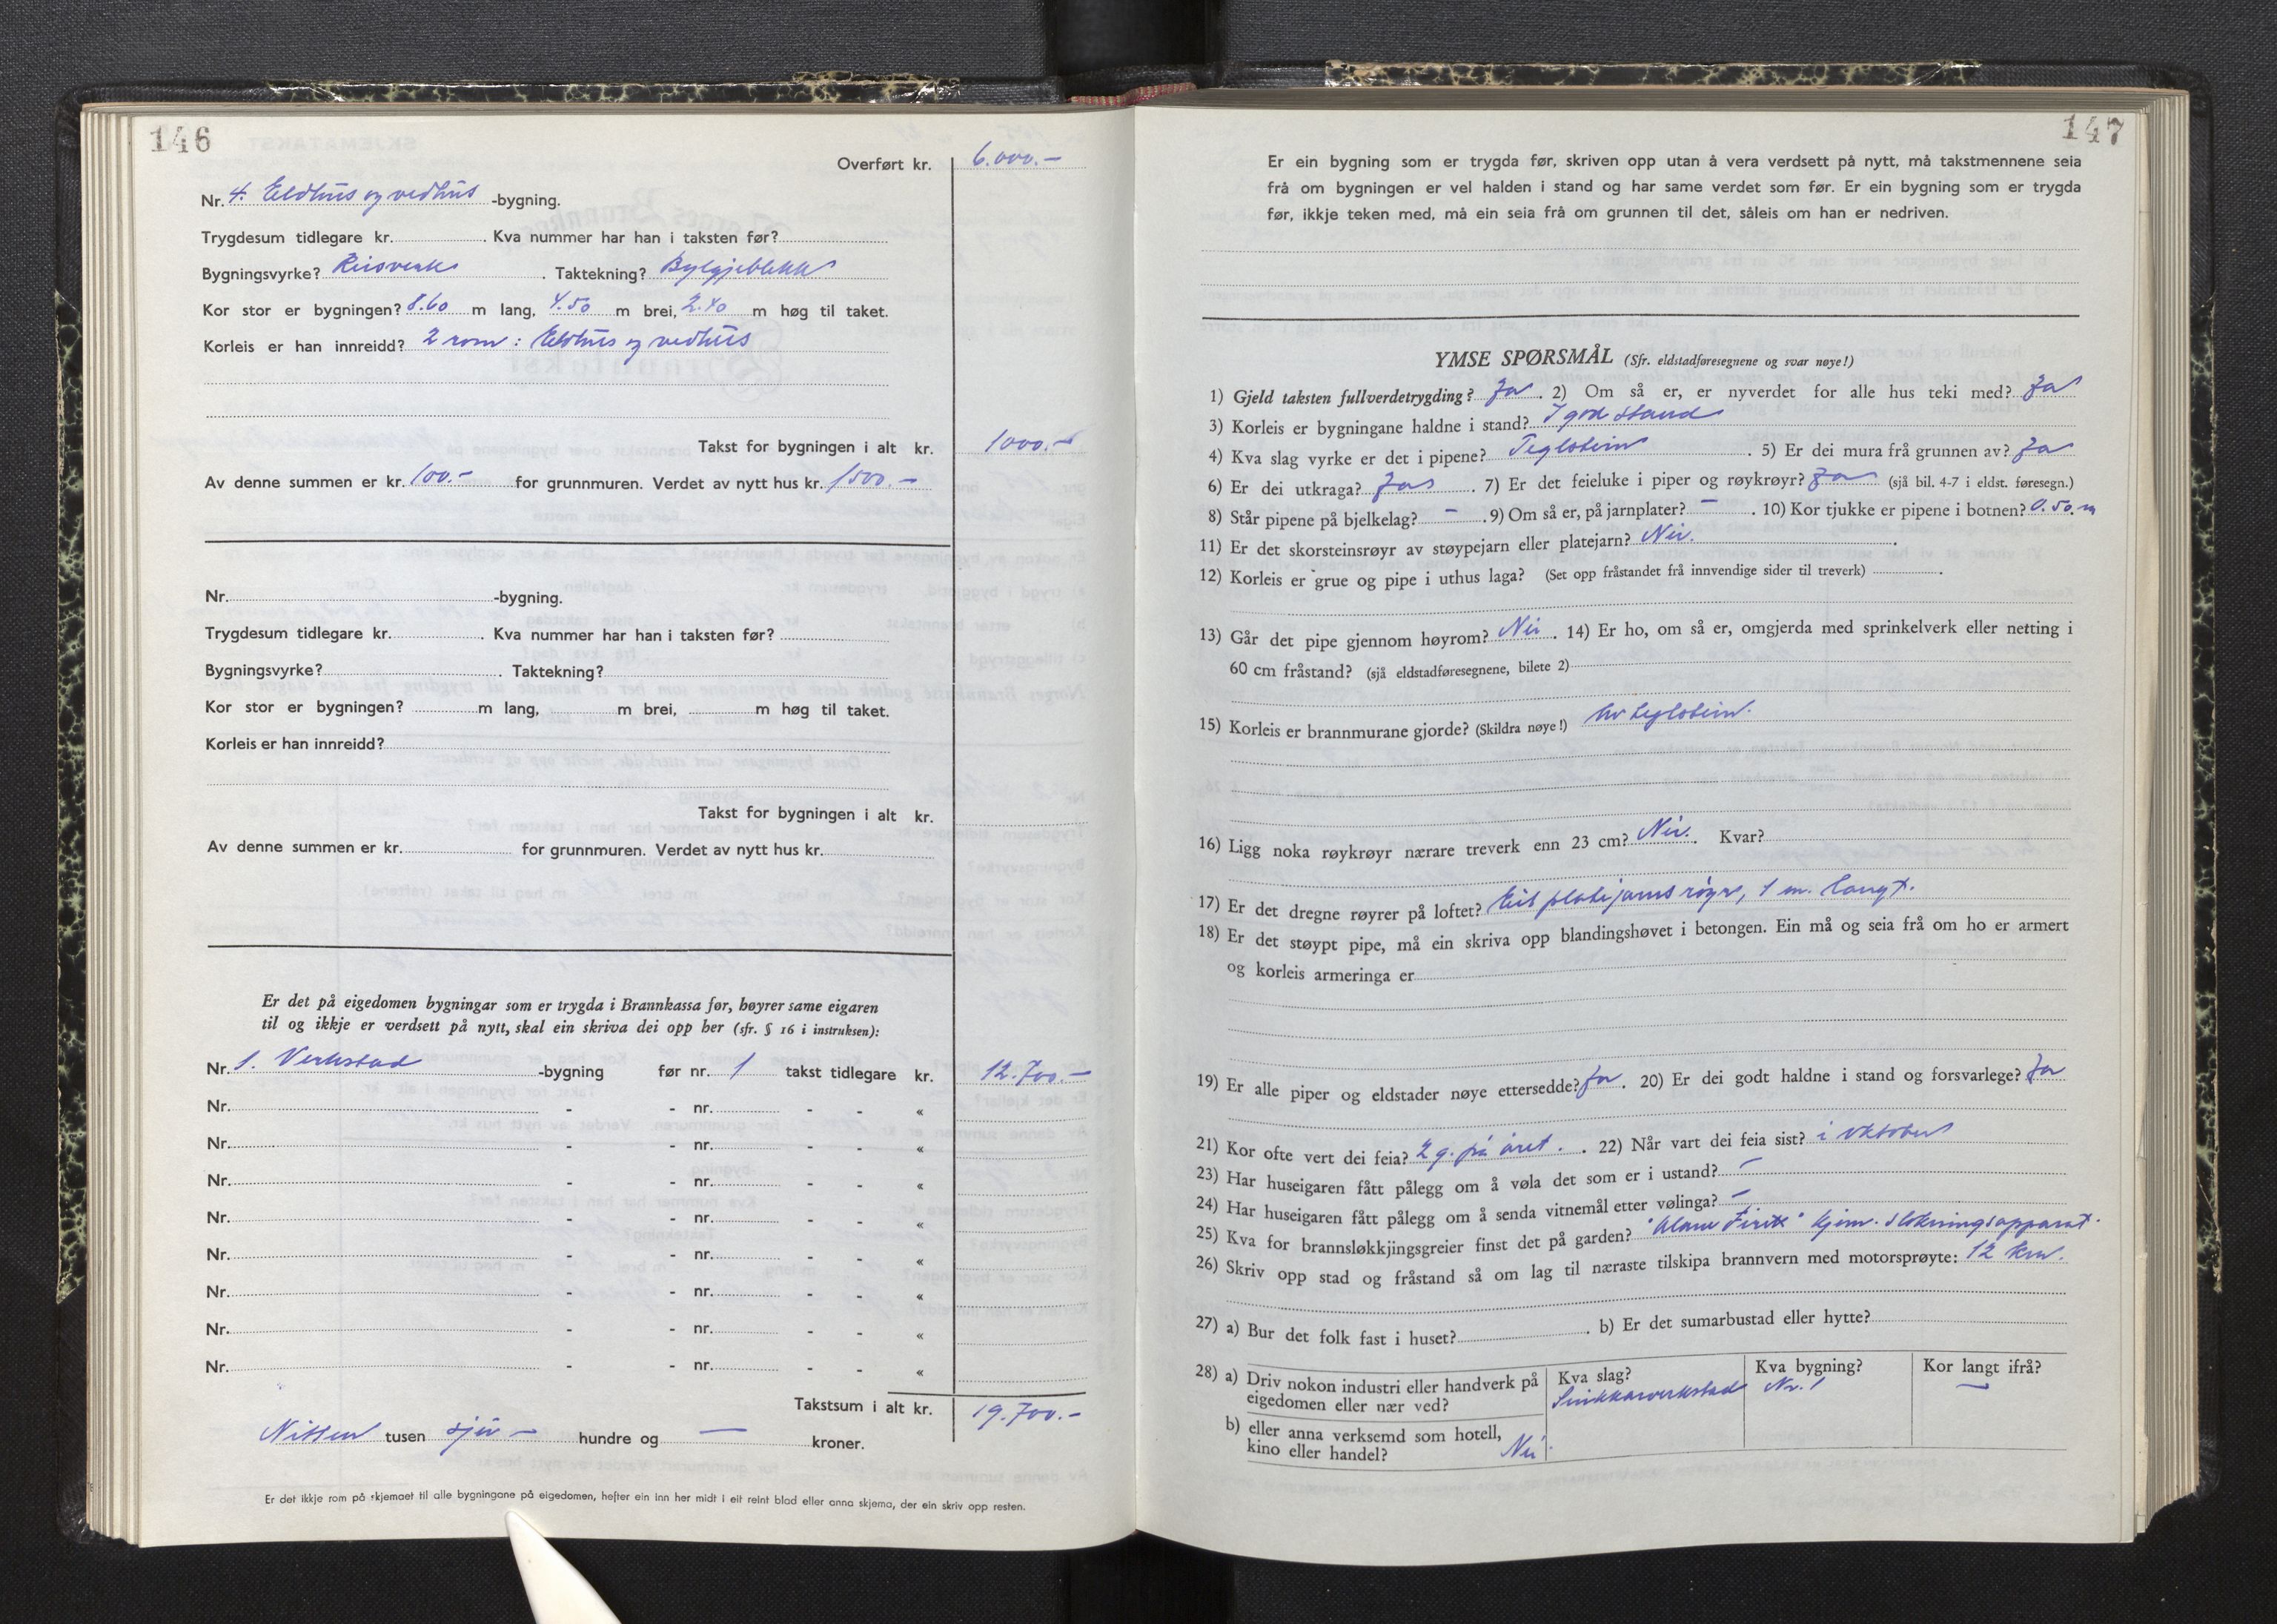 146
Overført kr. 6.000.–
Nr. 4. Eldhus og vedhus -bygning.
Trygdesum tidlegare kr. . Kva nummer har han i taksten før?
Bygningsvyrke? Reisverk . Taktekning? Bylgjeblekk
Kor stor er bygningen? 8.60 m lang, 4.50 m brei, 2.40 m høg til taket.
Korleis er han innreidd? 2 rom: Eldhus og vedhus
Takst for bygningen i alt kr. 1000.–
Av denne summen er kr. 100.– for grunnmuren. Verdet av nytt hus kr. 1500.–
Nr. -bygning.
Trygdesum tidlegare kr. . Kva nummer har han i taksten før?
Bygningsvyrke? . Taktekning?
Kor stor er bygningen? m lang, m brei, m høg til taket.
Korleis er han innreidd?
Takst for bygningen i alt kr.
Av denne summen er kr. for grunnmuren. Verdet av nytt hus kr.
Er det på eigedomen bygningar som er trygda i Brannkassa før, høyrer same eigaren
til og ikkje er verdsett på nytt, skal ein skriva dei opp her (sfr. § 16 i instruksen):
Nr. 1. Verkstad -bygning før nr. 1 takst tidlegare kr. 12.700.–
Nr. - - nr. - - «
Nr. - - nr. - - «
Nr. - - nr. - - «
Nr. - - nr. - - «
Nr. - - nr. - - «
Nr. - - nr. - - «
Nr. - - nr. - - «
Nr. - - nr. - - «
Takstsum i alt kr. 19.700.–
Nitten tusen sju – hundre og — kroner.
Er det ikkje rom på skjemaet til alle bygningane på eigedomen, hefter ein inn her midt i eit reint blad eller anna skjema, der ein skriv opp resten.
147
Er ein bygning som er trygda før, skriven opp utan å vera verdsett på nytt, må takstmennene seia
frå om bygningen er vel halden i stand og har same verdet som før. Er ein bygning som er trygda
før, ikkje teken med, må ein seia frå om grunnen til det, såleis om han er nedriven.
YMSE SPØRSMÅL (Sfr. eldstadføresegnene og svar nøye!)
1) Gjeld taksten fullverdetrygding? Ja . 2) Om så er, er nyverdet for alle hus teki med? Ja
3) Korleis er bygningane haldne i stand? I god stand
4) Kva slag vyrke er det i pipene? Teglstein . 5) Er dei mura frå grunnen av? Ja
6) Er dei utkraga? Ja . 7) Er det feieluke i piper og røykrøyr? Ja (sjå bil. 4-7 i eldst. føresegn.)
8) Står pipene på bjelkelag? – . 9) Om så er, på jarnplater? – . 10) Kor tjukke er pipene i botnen? 0.50.m
11) Er det skorsteinsrøyr av støypejarn eller platejarn? Nei. .
12) Korleis er grue og pipe i uthus laga? (Set opp fråstandet frå innvendige sider til treverk) .
13) Går det pipe gjennom høyrom? Nei . 14) Er ho, om så er, omgjerda med sprinkelverk eller netting i
60 cm fråstand? (sjå eldstadføresegnene, bilete 2)
15) Korleis er brannmurane gjorde? (Skildra nøye!) Av teglstein.
16) Ligg noka røykrøyr nærare treverk enn 23 cm? Nei. . Kvar?
17) Er det dregne røyrer på loftet? Eit platejarns røyr, 1 m. langt.
18) Er det støypt pipe, må ein skriva opp blandingshøvet i betongen. Ein må og seia frå om ho er armert
og korleis armeringa er
19) Er alle piper og eldstader nøye ettersedde? Ja . 20) Er dei godt haldne i stand og forsvarlege? Ja
21) Kor ofte vert dei feia? 2 g. på året. . 22) Når vart dei feia sist? i oktober
23) Har huseigaren fått pålegg om å vøla det som er i ustand? –
24) Har huseigaren fått pålegg om å senda vitnemål etter vølinga? –
25) Kva for brannsløkkjingsgreier finst det på garden? kjem. slökningsapparat.
26) Skriv opp stad og fråstand så om lag til næraste tilskipa brannvern med motorsprøyte: 12 km.
27) a) Bur det folk fast i huset? . b) Er det sumarbustad eller hytte?
28) a) Driv nokon industri eller handverk på eigedomen eller nær ved? Kva slag? Snikkarverkstad Kva bygning? Nr. 1 Kor langt ifrå? —
b) eller anna verksemd som hotell,
kino eller handel? Nei.